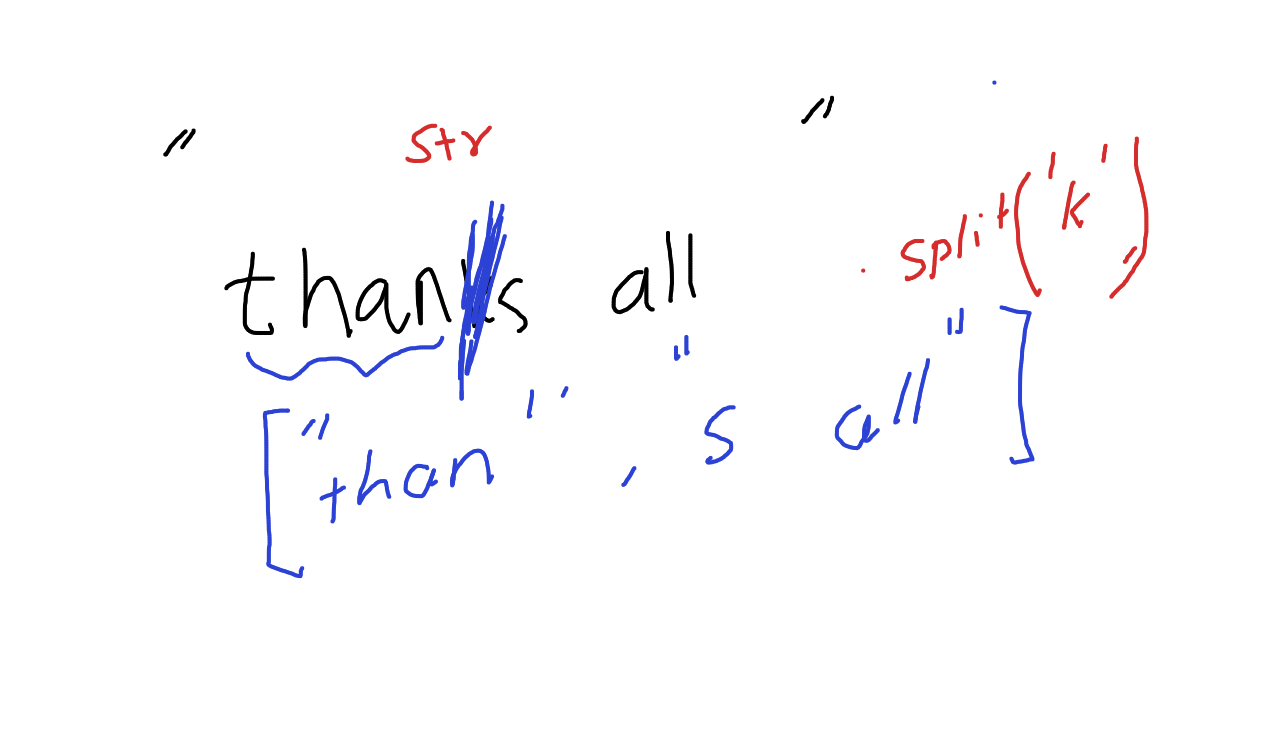 str
" thanks all " .split('k')
["than", "s all"]